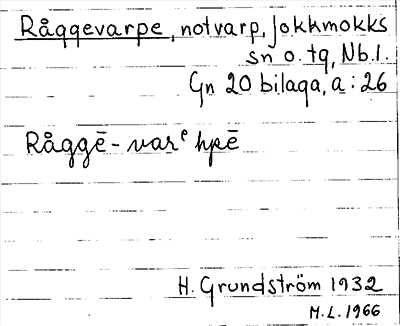 Råggevarpe, notvarp, Jokkmokks
sn o. tg, Nb.l.
Gn 20 bilaga, a: 26
Råggē-varᵉhpē
H. Grundström 1932
M.L. 1966